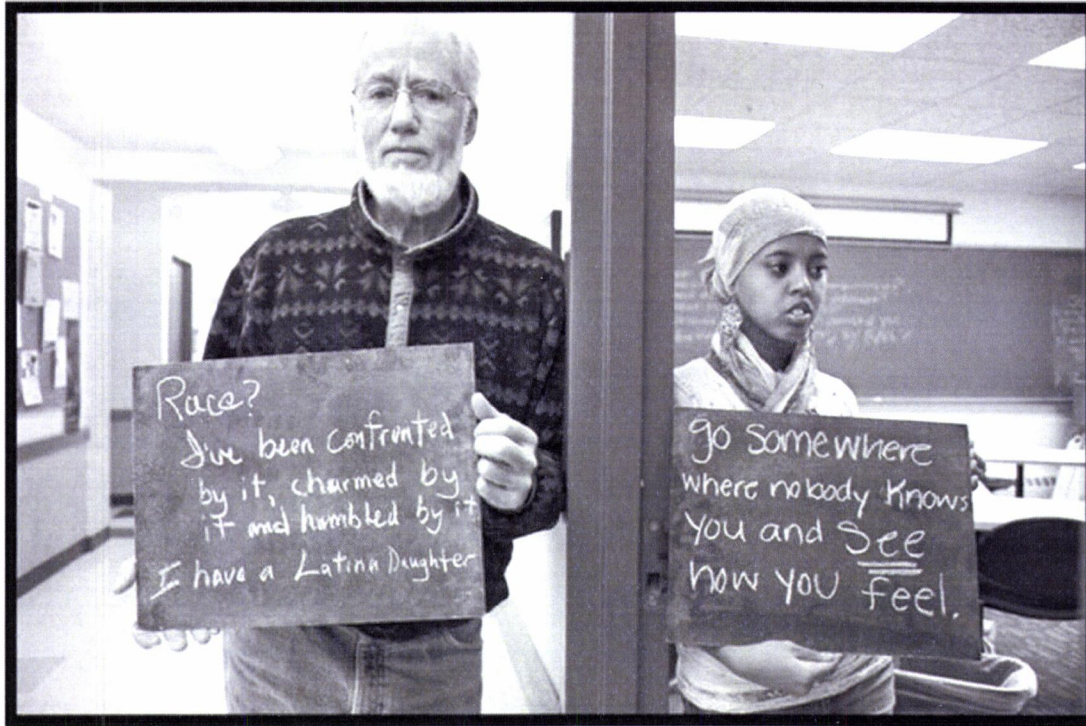 Race?
I've been confronted
by it, charmed by
it and humbled by it
I have a Latina Daughter
go somewhere
where nobody Knows
you and See
how you feel.